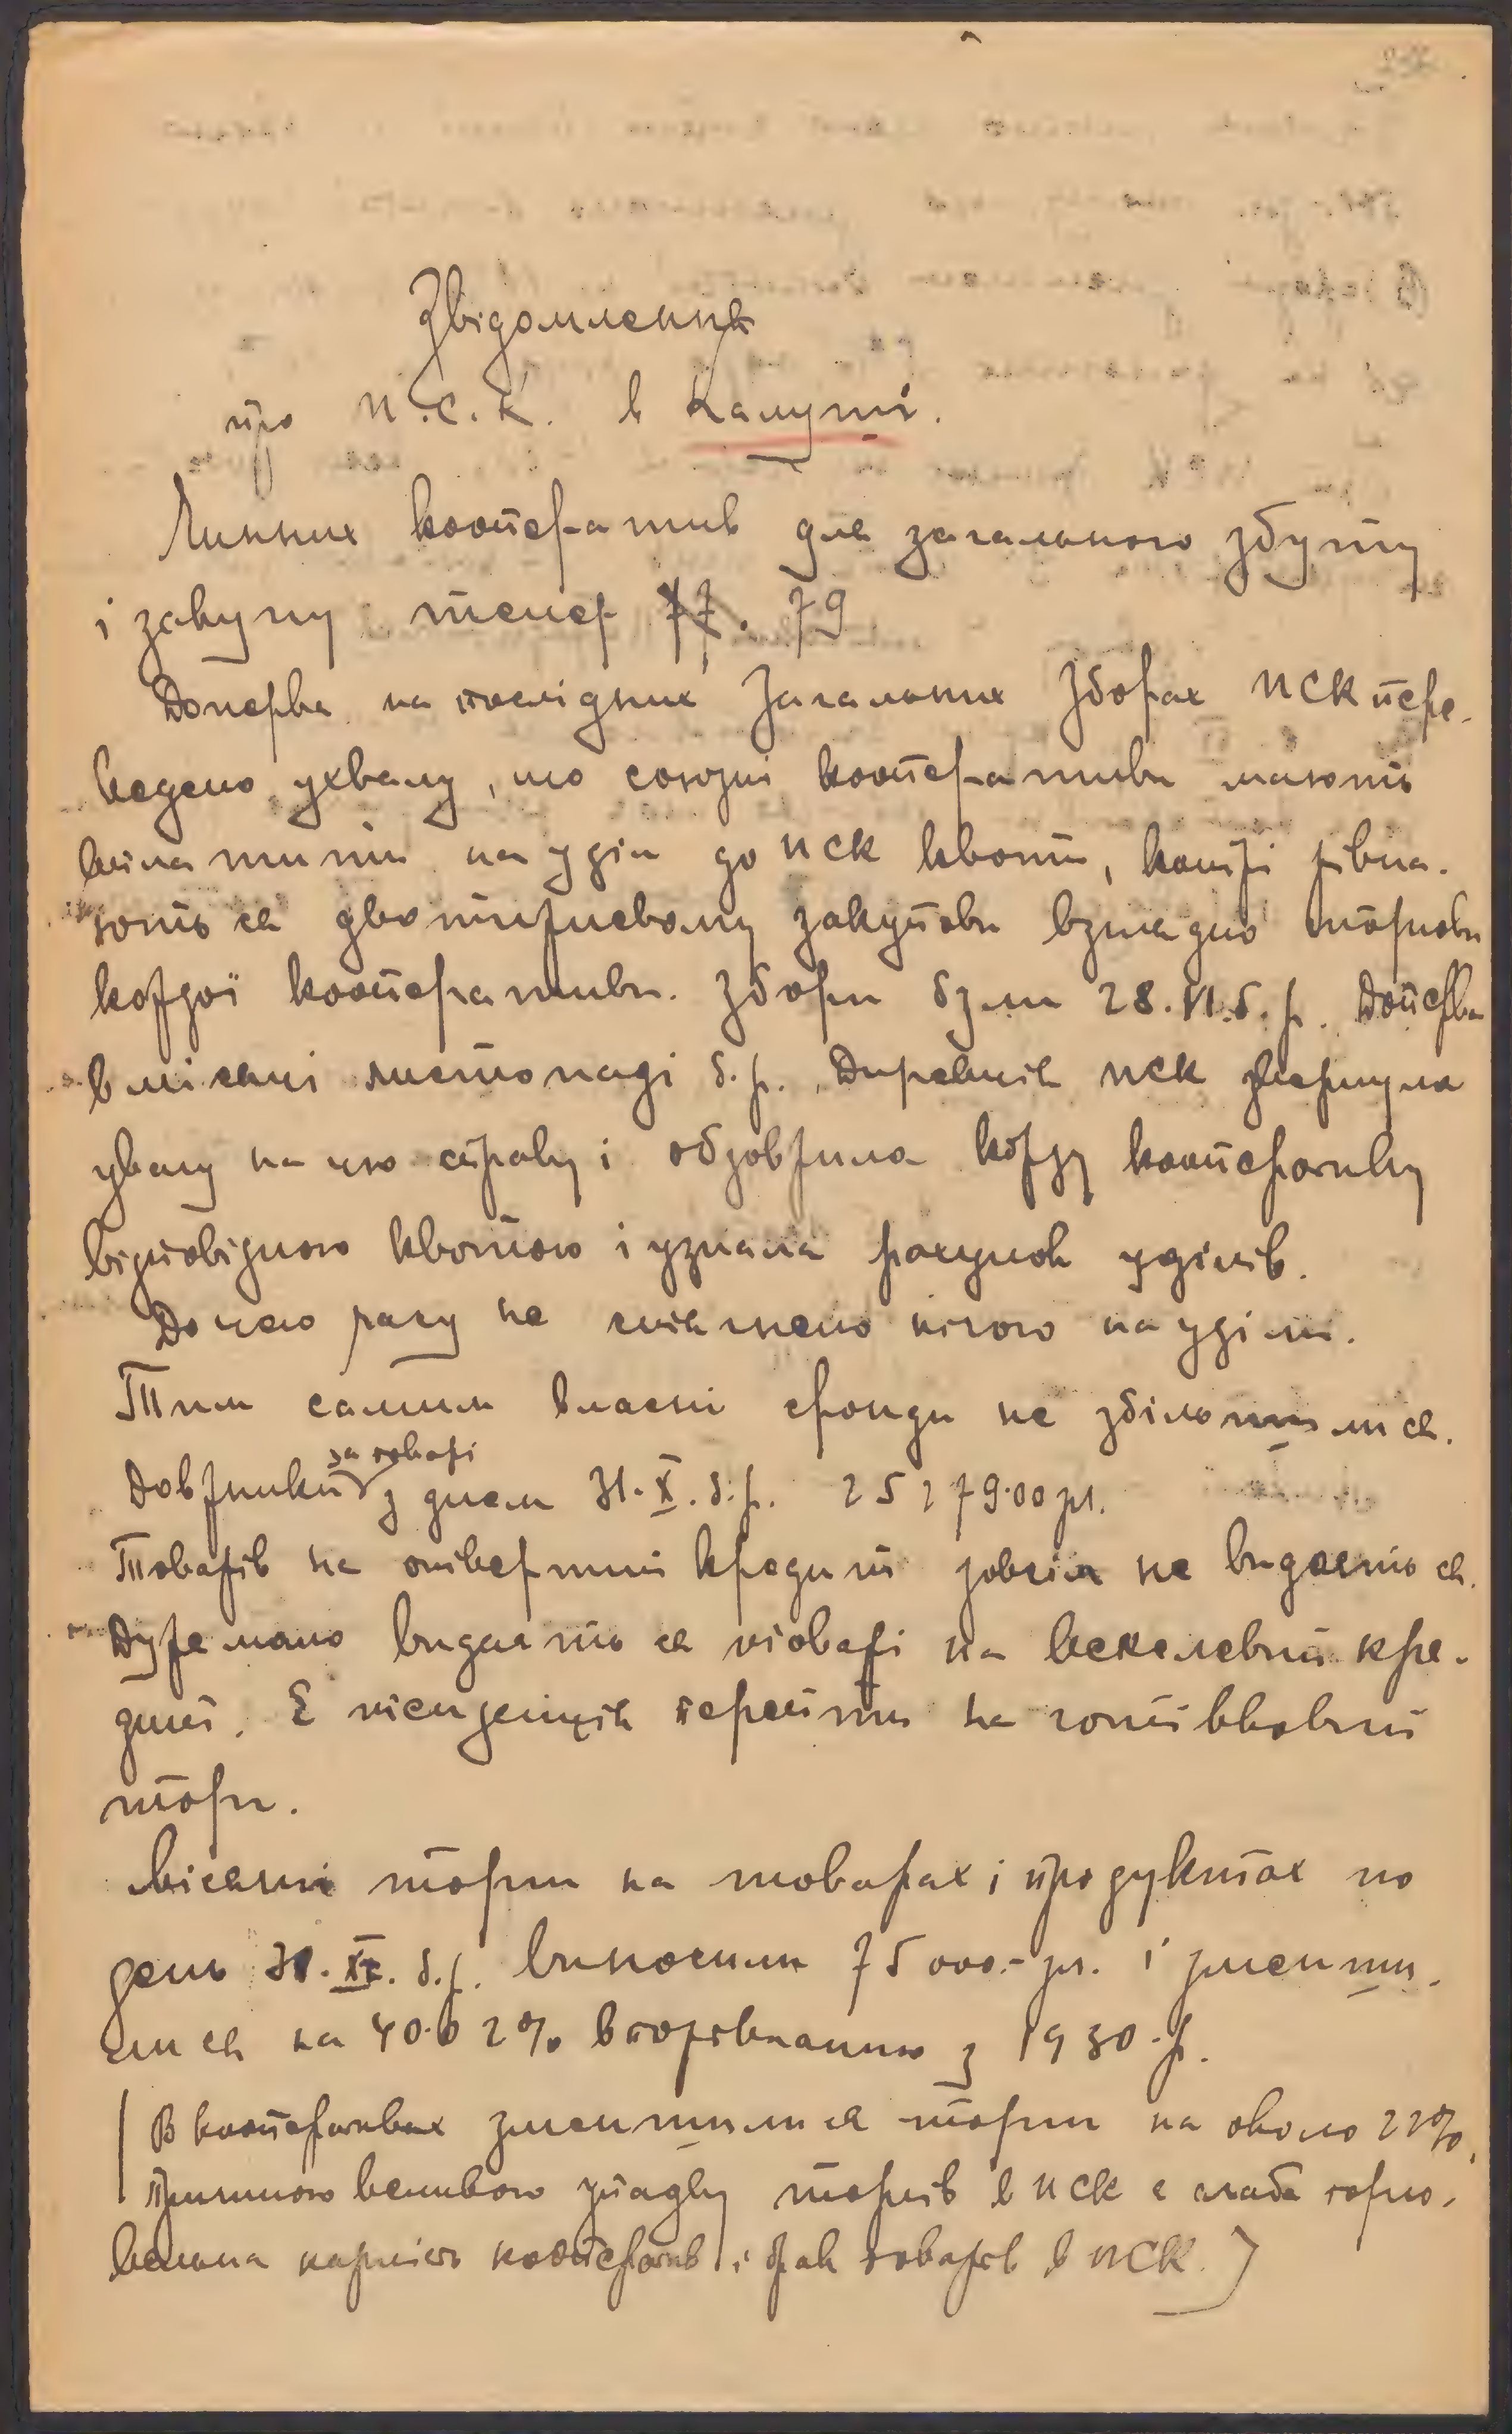 Звідомлення
про П.С.К. в Калуші.
Чинних кооператив для загального збуту
і закупу тепер 77. 79
Доперва на послідних Загальних Зборах ПСК пере-
ведено ухвалу, що союзні кооперативи мають
вплатити на уділ до ПСК квоти, котрі рівна-
ють ся двотижневому закупови взглядно торгови
кождої кооперативи. Збори були 28.VI.б.р. Доперва
в місяці листопаді б.р. Дирекція ПСК звернула
увагу на цю справу і обовязала кожду кооперативу
відповідною квотою і узнала рахунок уділів.
До цего часу не стягнено нічого на уділи.
Тим самим власні фонди не збільшились ся.
Довжники за товарі з днем 31.X.б.р. 25279.00 зл.
Товарів на отвертий кредит зовсім не видаєть ся.
Дуже мало видаєть ся товарі на векслевий кре-
дит. Є тенденція перейти на готівковий
торг.
Місячні торги на товарах і продуктах по
день 31.XI.б.р. виносили 75000.- зл. і зменши-
лися на 40.02% в порівнанню з 1930.р.
В кооперативах зменшилися торги на около 22%.
Причиною великого упадку торгів в ПСК є слаба торго-
вельна карність кооператив і брак товарів в ПСК.)